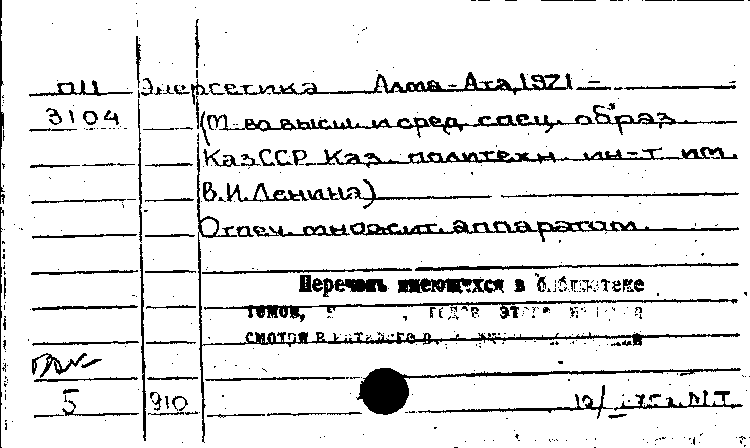 П11 Энергетика Алма-Ата, 1971 -
3104 (М-во высш. и сред. спец. образ.
КазССР. Каз. политехн. ин-т им.
В.И. Ленина)
Отпеч. множит. аппаратом.
Перечень имеющихся в библиотеке
томов, годов этого издания
смотри в каталоге
5 910 12/